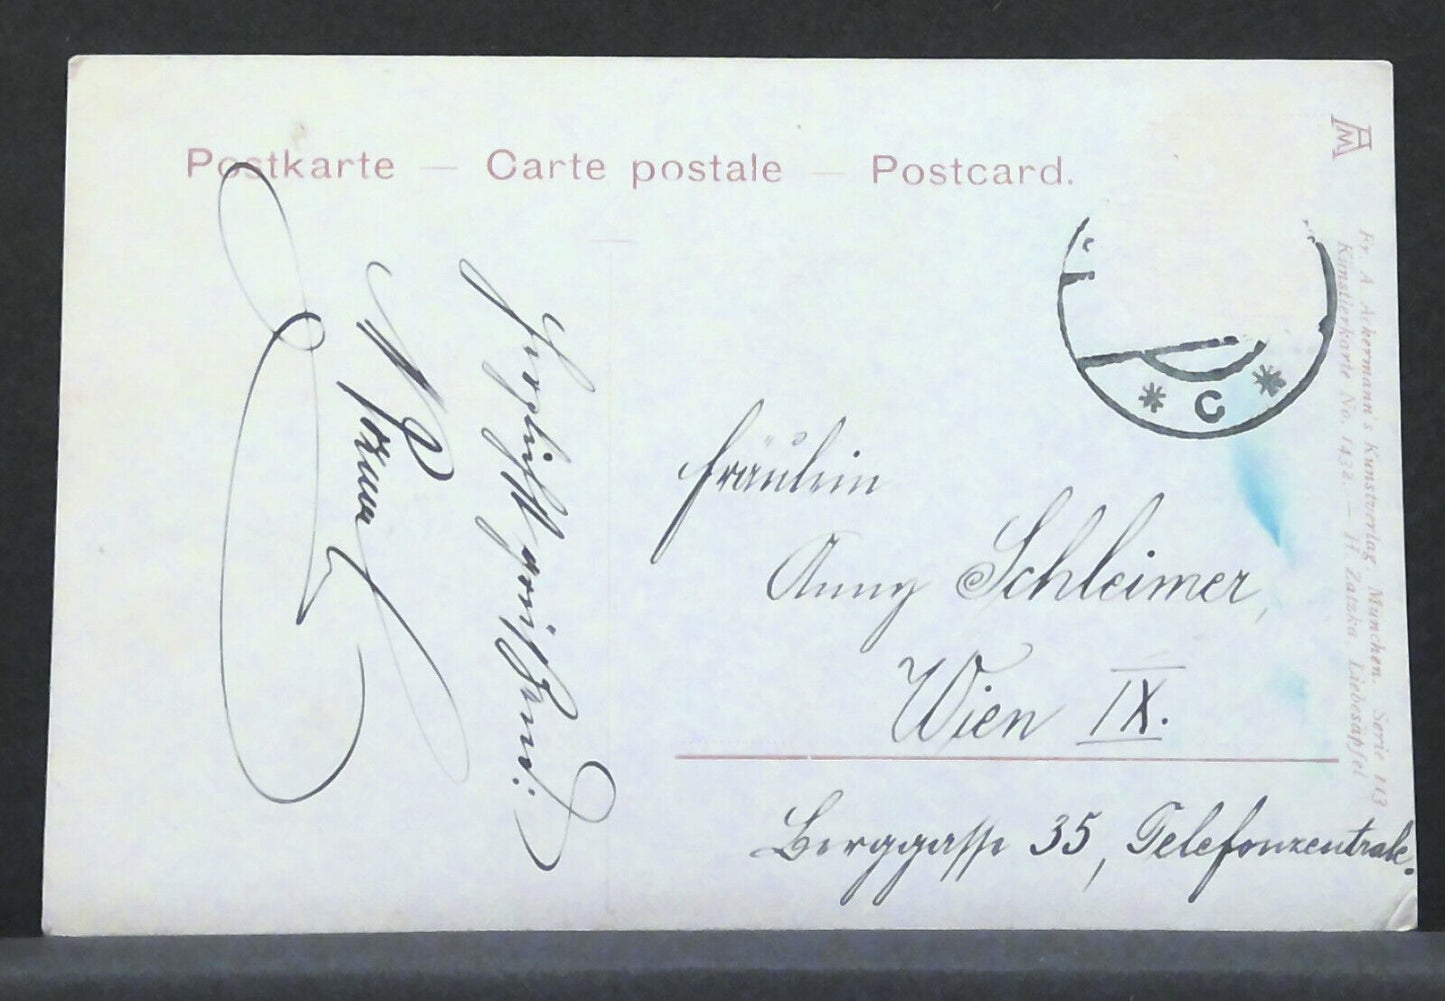 Postkarte — Carte postale — Postcard.
Fräulein
Anny Schleimer,
Wien IX.
Berggasse 35, Telefonzentrale.
Herzlichst grüßend:
* C *
AM
Fr. A. Ackermann's Kunstverlag, München. Serie 113
Künstlerkarte No. 1432. — H. Zatzka, Liebesäpfel